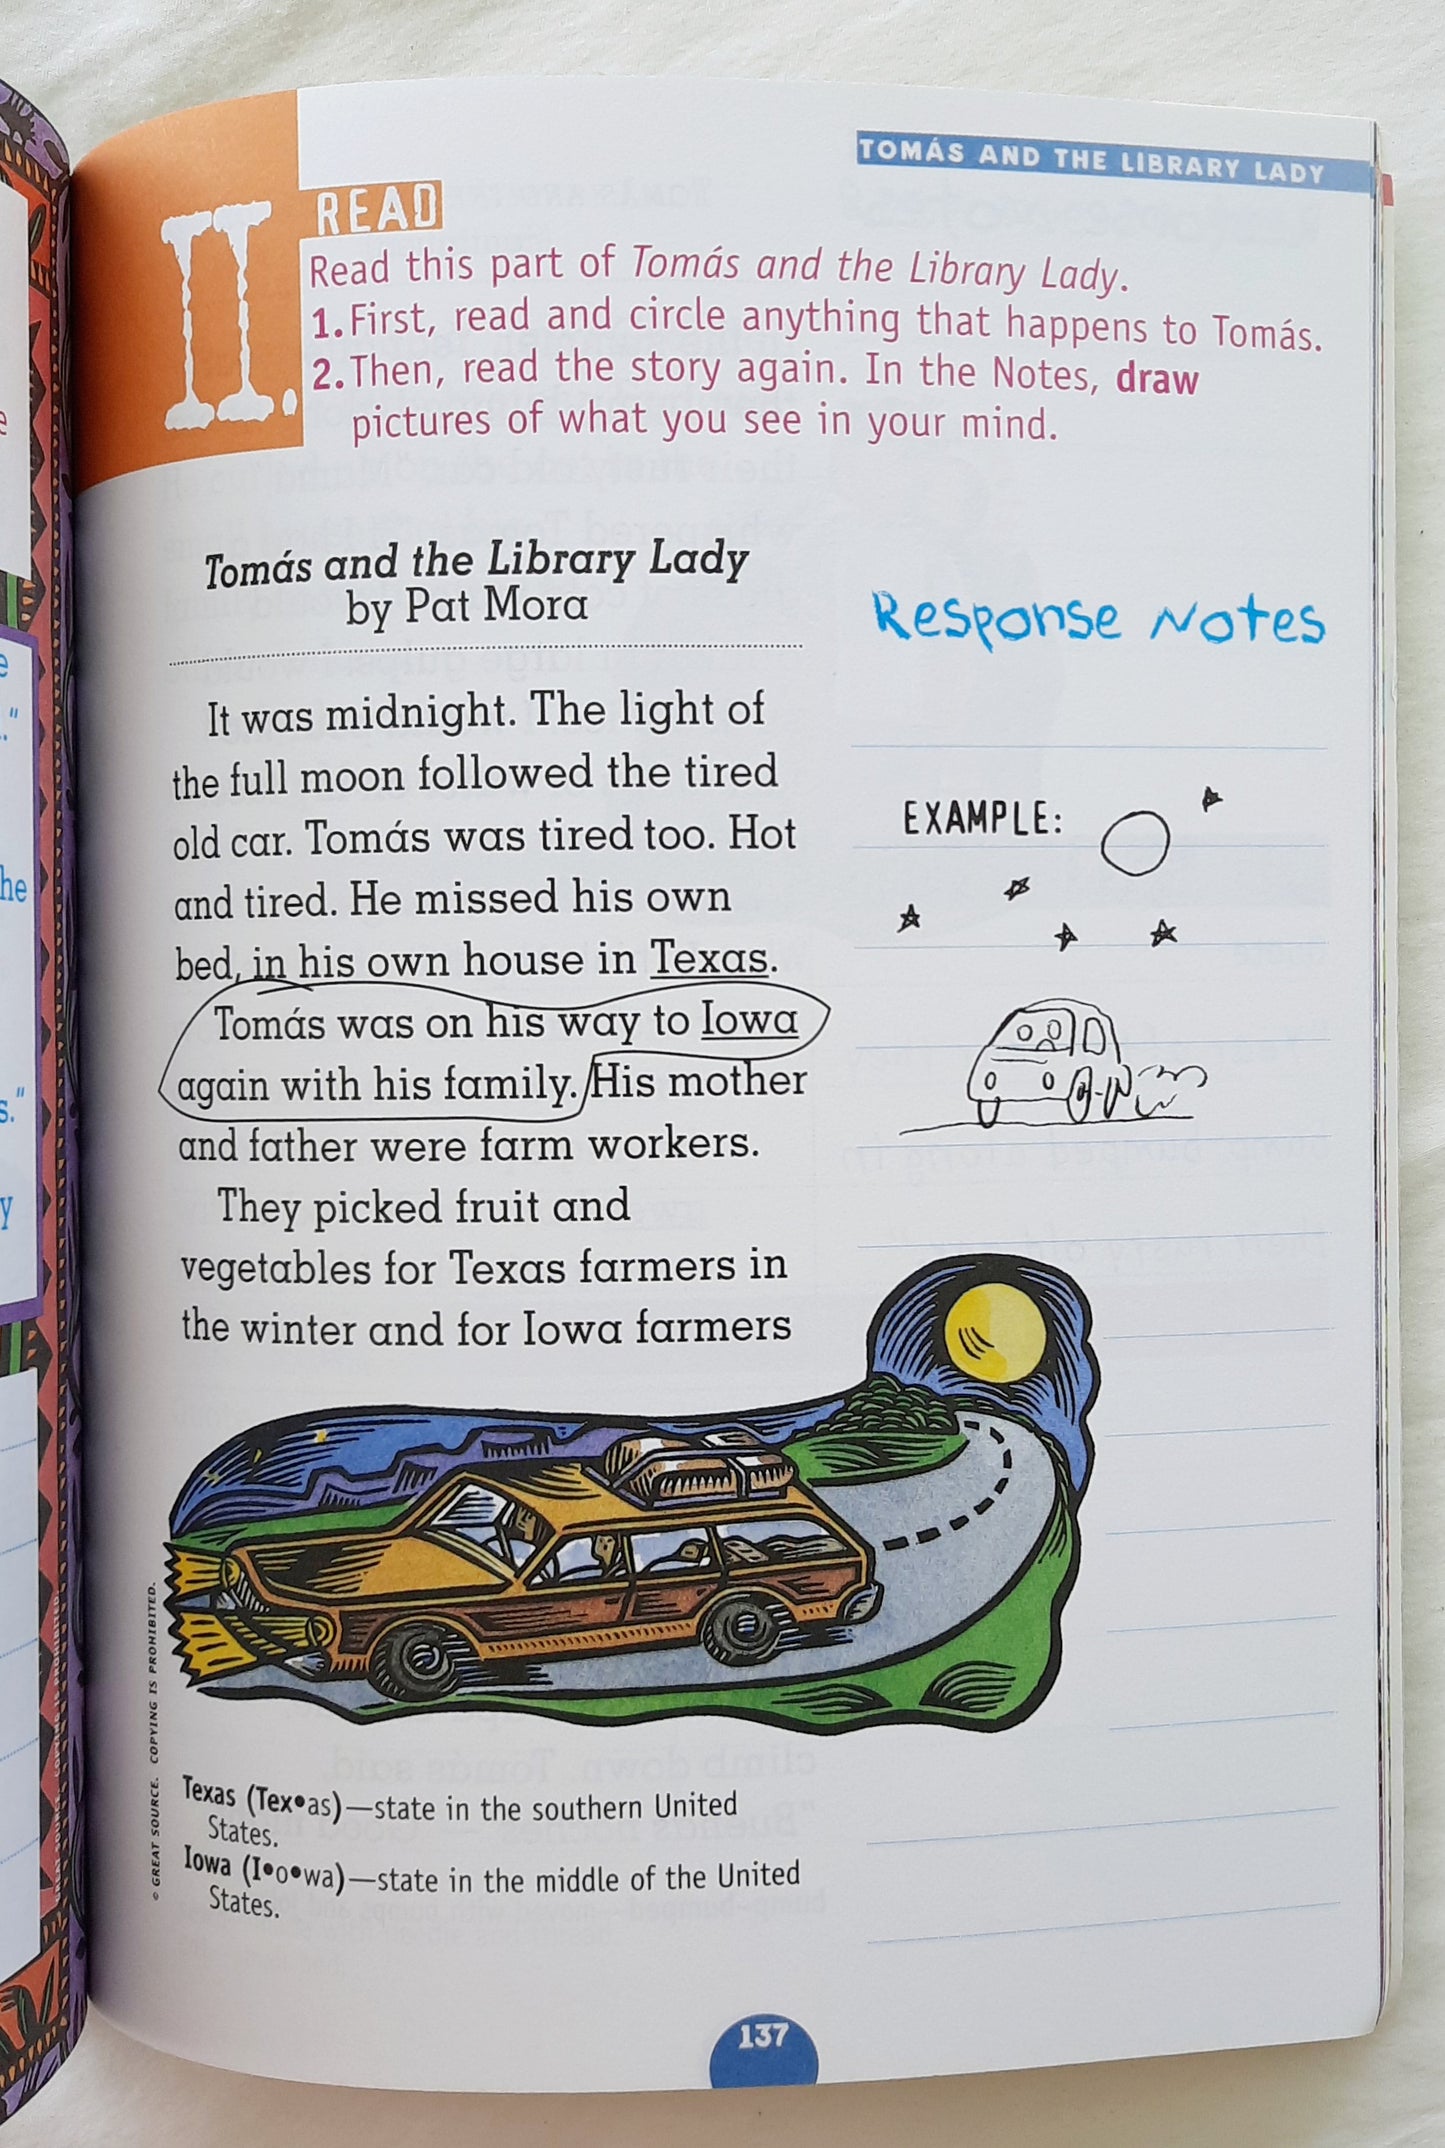 TOMÁS AND THE LIBRARY LADY
II.
READ
Read this part of Tomás and the Library Lady.
1. First, read and circle anything that happens to Tomás.
2. Then, read the story again. In the Notes, draw
pictures of what you see in your mind.
Tomás and the Library Lady
by Pat Mora
It was midnight. The light of
the full moon followed the tired
old car. Tomás was tired too. Hot
and tired. He missed his own
bed, in his own house in Texas.
Tomás was on his way to Iowa
again with his family. His mother
and father were farm workers.
They picked fruit and
vegetables for Texas farmers in
the winter and for Iowa farmers
Response Notes
EXAMPLE:
© GREAT SOURCE. COPYING IS PROHIBITED.
Texas (Tex•as)—state in the southern United
States.
Iowa (I•o•wa)—state in the middle of the United
States.
137